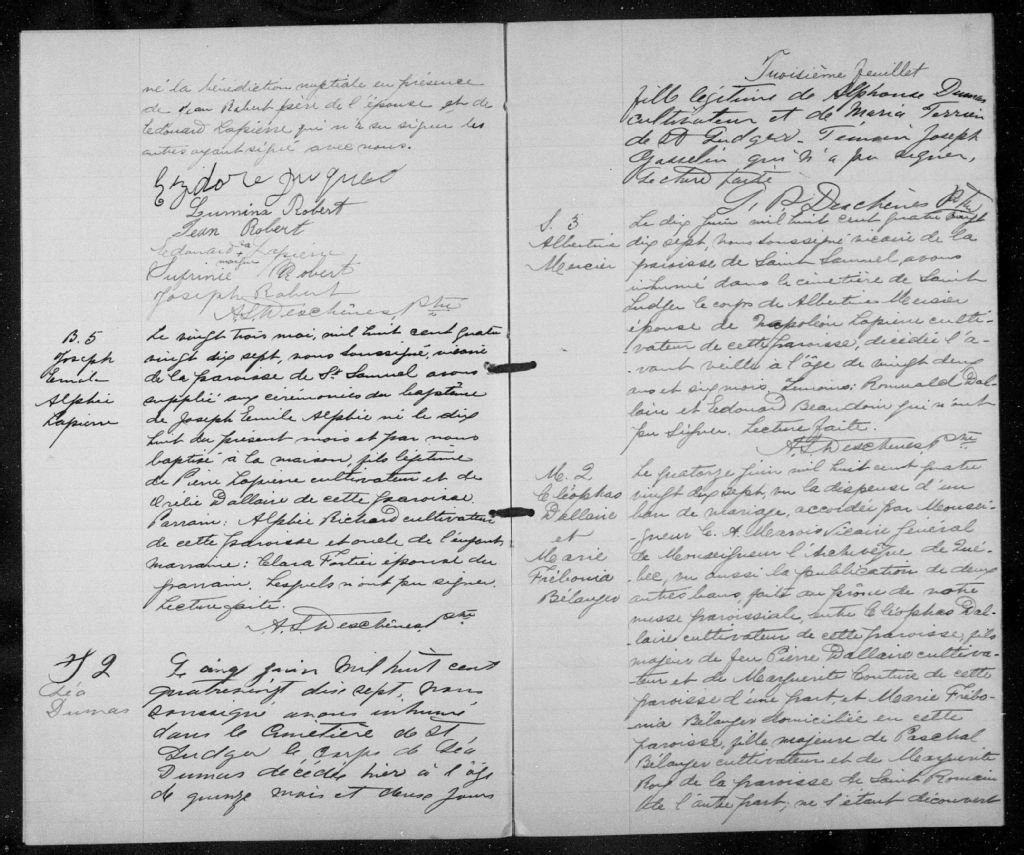 né la bénédiction nuptiale en présence
de Jean Robert père de l'épouse et de
Edouard Lapierre qui n'a su signer les
autres ayant signé avec nous.
Lumina Robert
Jean Robert
Edouard sa + Lapierre
marque
Eufrinie Robert
Joseph Robert
A. S. Deschênes Ptre
B. 5
Joseph
Emile
Alphée
Lapierre
Le vingt trois mai, mil huit cent quatre
vingt dix sept, nous soussigné, vicaire
de la paroisse de St Samuel avons
supplié aux cérémonies du baptême
de Joseph Emile Alphée né le dix
huit du présent mois et par nous
baptisé à la maison, fils légitime
de Pierre Lapierre cultivateur et de
Orélie Dallaire de cette paroisse.
Parrain: Alphée Richard cultivateur
de cette paroisse et oncle de l'enfant
marraine: Clara Fortier épouse du
parrain. Lesquels n'ont pu signer.
Lecture faite.
A. S. Deschênes, Ptre
S 2
Léa
Dumas
Le cinq juin mil huit cent
quatrevingt dix sept, nous
soussigné avons inhumé
dans le Cimetière de St
Ludger le corps de Léa
Dumas décédée hier à l'âge
de quinze mois et deux jours
Troisième feuillet
fille légitime de Alphonse Dumas
cultivateur et de Maria Terrien
de St Ludger. Témoin Joseph
Gosselin qui n'a pu signer,
Lecture faite
Deschênes Ptre
S. 3
Albertine
Mercier
Le dix juin mil huit cent quatre vingt
dix sept, nous soussigné vicaire de la
paroisse de Saint Samuel, avons
inhumé dans le cimetière de Saint
Ludger le corps de Albertine Mercier
épouse de Napoléon Lapierre culti-
-vateur de cette paroisse, décédée l'a-
-vant veille à l'âge de vingt deux
ans et six mois. Témoins: Romuald Dal-
-laire et Edouard Beaudoin qui n'ont
pu signer. Lecture faite.
A. S. Deschênes, Ptre
M. 2
Cléophas
Dallaire
et
Marie
Frébonia
Bélanger
Le quatorze juin mil huit cent quatre
vingt dix sept, vu la dispense d'un
ban de mariage, accordée par Monsei-
-gneur C. A. Marois Vicaire Général
de Monseigneur l'Archevêque de Qué-
-bec, vu aussi la publication de deux
autres bans faite au prône de notre
messe paroissiale, entre Cléophas Dal-
-laire cultivateur de cette paroisse, fils
majeur de feu Pierre Dallaire cultiva-
-teur et de Marguerite Couture de cette
paroisse d'une part, et Marie Frébo-
-nia Bélanger domiciliée en cette
paroisse, fille majeure de Paschal
Bélanger cultivateur et de Marguerite
Roy de la paroisse de Saint Romain
de l'autre part; ne s'étant découvert